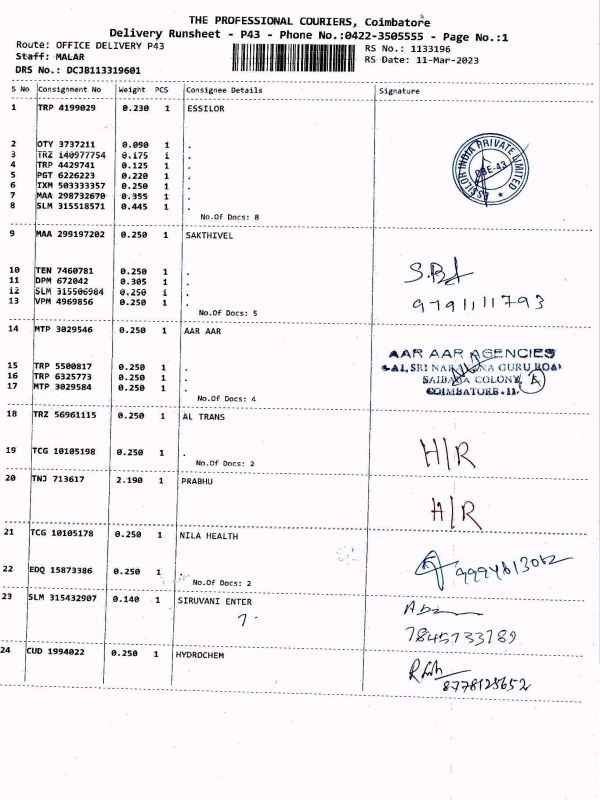 THE PROFESSIONAL COURIERS, Coimbatore
Delivery Runsheet - P43 - Phone No.:0422-3505555 - Page No.:1
Route: OFFICE DELIVERY P43 RS No.: 1133196
Staff: MALAR RS Date: 11-Mar-2023
DRS No.: DCJB113319601
S No Consignment No Weight PCS Consignee Details Signature
1 TRP 4199029 0.230 1 ESSILOR
2 OTY 3737211 0.090 1 .
3 TRZ 140977754 0.175 1 .
4 TRP 4429741 0.125 1 .
5 PGT 6226223 0.220 1 .
6 IXM 503333357 0.250 1 .
7 MAA 298732670 0.355 1 .
8 SLM 315518571 0.445 1 .
No.Of Docs: 8
ESSILOR INDIA PRIVATE LIMITED
CBE-43
9 MAA 299197202 0.250 1 SAKTHIVEL
10 TEN 7460781 0.250 1 .
11 DPM 672042 0.305 1 .
12 SLM 315506984 0.250 1 .
13 VPM 4969856 0.250 1 .
No.Of Docs: 5
9791111793
14 MTP 3029546 0.250 1 AAR AAR
15 TRP 5500817 0.250 1 .
16 TRP 6325773 0.250 1 .
17 MTP 3029584 0.250 1 .
No.Of Docs: 4
AAR AAR AGENCIES
SRI NARAYANA GURU ROAD
SAIBABA COLONY,
COIMBATORE-11.
18 TRZ 56961115 0.250 1 AL TRANS
19 TCG 10105198 0.250 1 .
No.Of Docs: 2
H/R
20 TNJ 713617 2.190 1 PRABHU
H/R
21 TCG 10105178 0.250 1 NILA HEALTH
22 EDQ 15873386 0.250 1 .
No.Of Docs: 2
23 SLM 315432907 0.140 1 SIRUVANI ENTER
7845733789
24 CUD 1994022 0.250 1 HYDROCHEM
8778128652